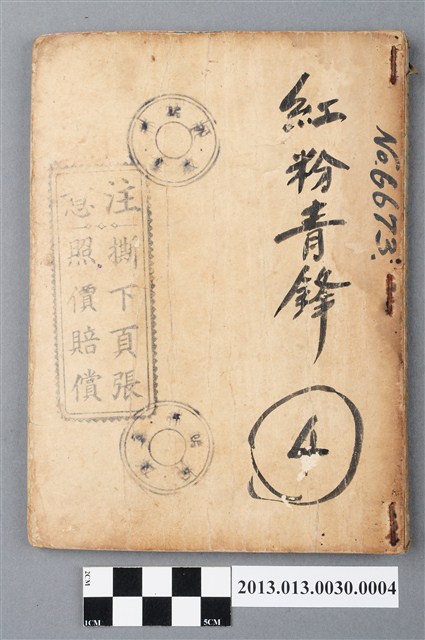 紅粉青鋒
4
No.6673
注意
撕下頁張
照價賠償
2CM
1CM
5CM
2013.013.0030.0004